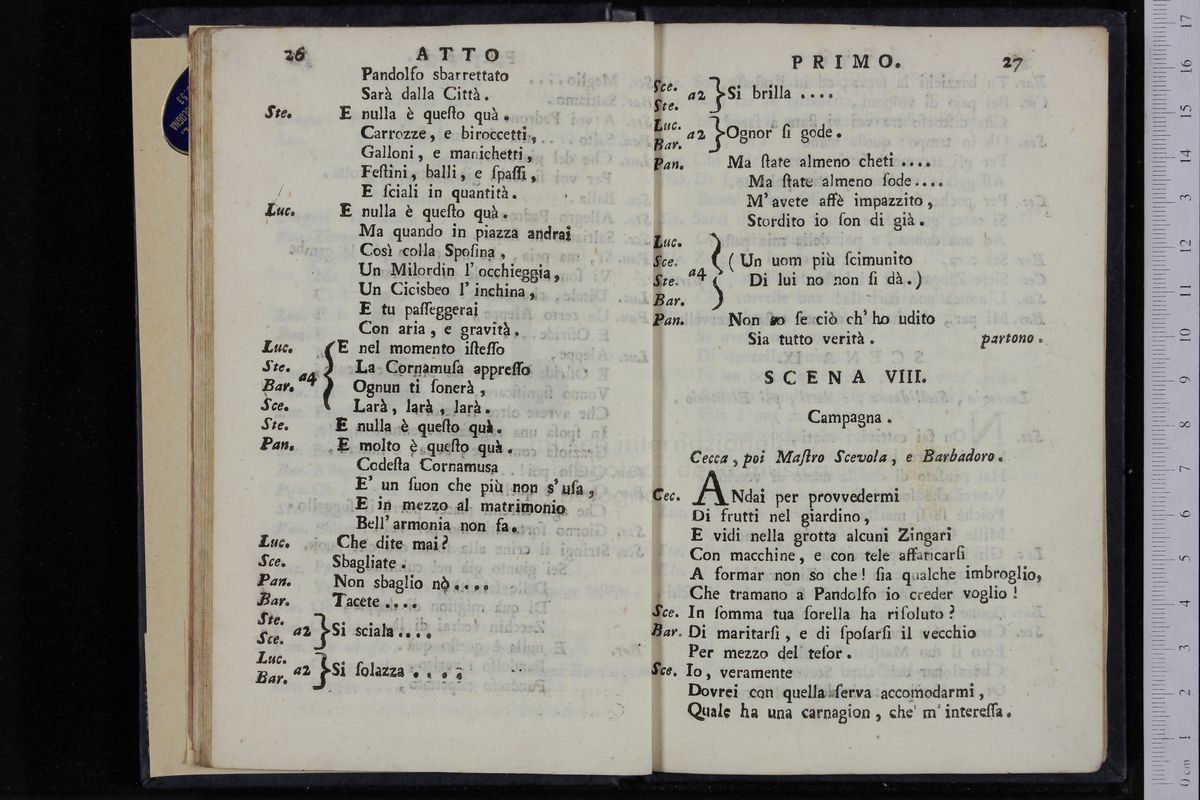 26 ATTO
Pandolfo sbarrettato
Sarà dalla Città.
Ste. E nulla è queſto quà.
Carrozze, e biroccetti,
Galloni, e manichetti,
Feſtini, balli, e ſpaſſi,
E ſciali in quantità.
Luc. E nulla è queſto quà.
Ma quando in piazza andrai
Così colla Spoſina,
Un Milordin l'occhieggia,
Un Cicisbeo l'inchina,
E tu paſſeggerai
Con aria, e gravità.
Luc. E nel momento iſteſſo
Ste. La Cornamuſa appreſſo
Bar. a4 Ognun ti ſonerà,
Sce. Larà, larà, larà.
Ste. E nulla è queſto quà.
Pan. E molto è queſto quà.
Codeſta Cornamusa
E' un ſuon che più non s'uſa,
E in mezzo al matrimonio
Bell'armonia non fa.
Luc. Che dite mai?
Sce. Sbagliate.
Pan. Non sbaglio nò....
Bar. Tacete....
Ste.
Sce. a2 Si sciala....
Luc.
Bar. a2 Si ſolazza....
PRIMO. 27
Sce.
Ste. a2 Si brilla....
Luc.
Bar. a2 Ognor ſi gode.
Pan. Ma ſtate almeno cheti....
Ma ſtate almeno ſode....
M'avete affè impazzito,
Stordito io ſon di già.
Luc.
Sce. (Un uom più ſcimunito
Ste. a4 Di lui no non ſi dà.)
Bar.
Pan. Non so ſe ciò ch'ho udito
Sia tutto verità. partono.
SCENA VIII.
Campagna.
Cecca, poi Maſtro Scevola, e Barbadoro.
Cec. ANdai per provvedermi
Di frutti nel giardino,
E vidi nella grotta alcuni Zingari
Con macchine, e con tele affaticarſi
A formar non so che! ſia qualche imbroglio,
Che tramano a Pandolfo io creder voglio!
Sce. In ſomma tua ſorella ha riſoluto?
Bar. Di maritarſi, e di ſpoſarſi il vecchio
Per mezzo del teſor.
Sce. Io, veramente
Dovrei con quella ſerva accomodarmi,
Quale ha una carnagion, che m'intereſſa.